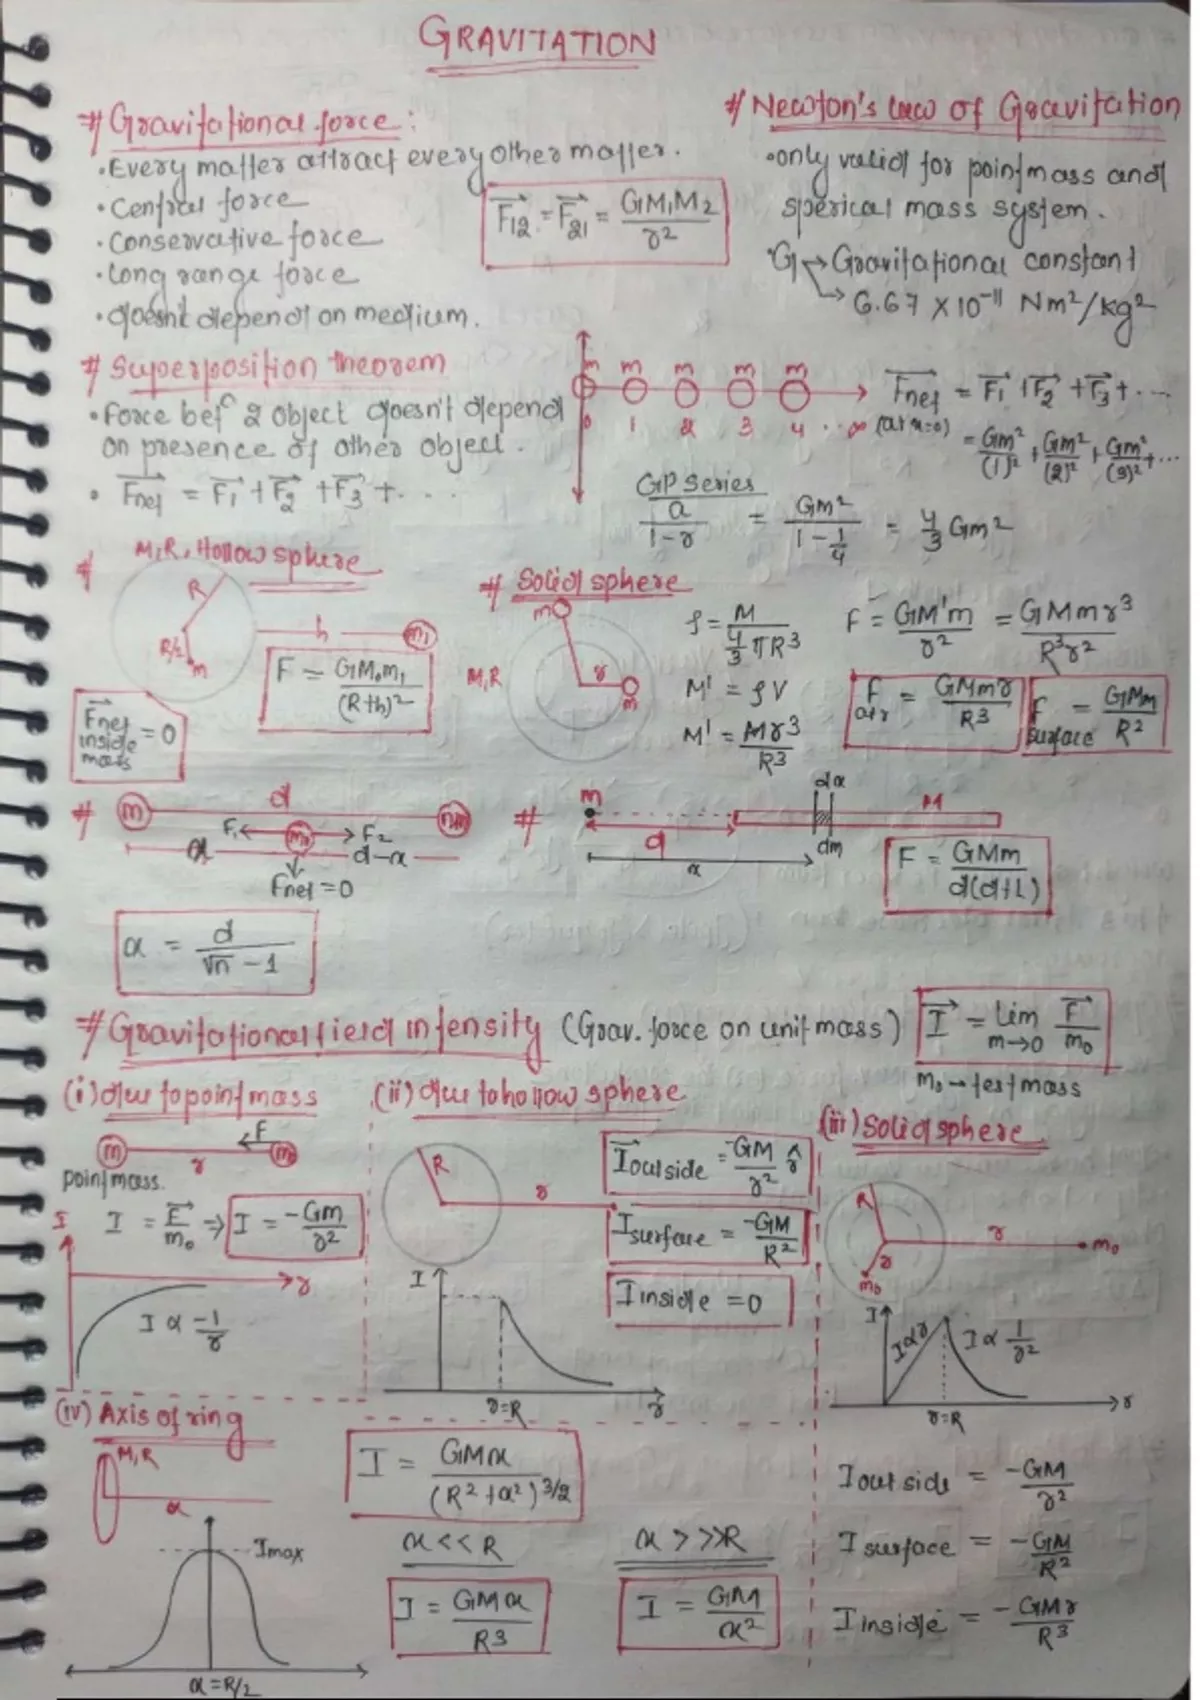 GRAVITATION
# Gravitational force:
• Every matter attract every other matter.
• Central force
• Conservative force
• Long range force
• doesn't depend on medium.
F₁₂ = F₂₁ = GM₁M₂/r²
# Newton's law of Gravitation
• only valid for point mass and
sperical mass system.
• G → Gravitational constant
→ 6.67 × 10⁻¹¹ Nm²/kg²
# Superposition theorem
• Force betⁿ 2 object doesn't depend
on presence of other object.
• Fnet = F₁ + F₂ + F₃ + . . . .
m m m m m
0 1 2 3 4 . . ∞ (at x=0)
Fnet = F₁ + F₂ + F₃ + . . . .
= Gm²/(1)² + Gm²/(2)² + Gm²/(3)² + ...
GP series
a/(1-r) = Gm²/(1-1/4) = 4/3 Gm²
# M,R, Hollow sphere
R
R/2
m
h
m₁
F = GM.m₁/(R+h)²
Fnet inside mass = 0
# Solid sphere
m
M,R
r
m
ρ = M/(4/3 πR³)
M' = ρV
M' = Mr³/R³
F = GM'm/r² = GMmr³/R³r²
F at r = GMmr/R³
F surface = GMm/R²
# m d nm
F₁ ← m₀ → F₂
x d-x
Fnet = 0
x = d/(√n - 1)
# m dx M
d
x dm
F = GMm/d(d+L)
# Gravitational field intensity (Grav. force on unit mass)
I = Lim m→0 F/m₀
m₀ → test mass
(i) due to point mass
m r F m₀
point mass.
I = F/m₀ ⇒ I = -Gm/r²
I
r
I α -1/r
(ii) due to hollow sphere
R
r
Ioutside = -GM/r² r̂
Isurface = -GM/R²
Iinside = 0
I
r=R r
(iii) Solid sphere
R
r
r m₀
m₀
I
I α r I α 1/r²
r=R r
Ioutside = -GM/r²
Isurface = -GM/R²
Iinside = -GMr/R³
(iv) Axis of ring
M,R
x
Imax
x = R/2
I = GMx/(R²+x²)^3/2
x << R
I = GMx/R³
x >>> R
I = GM/x²